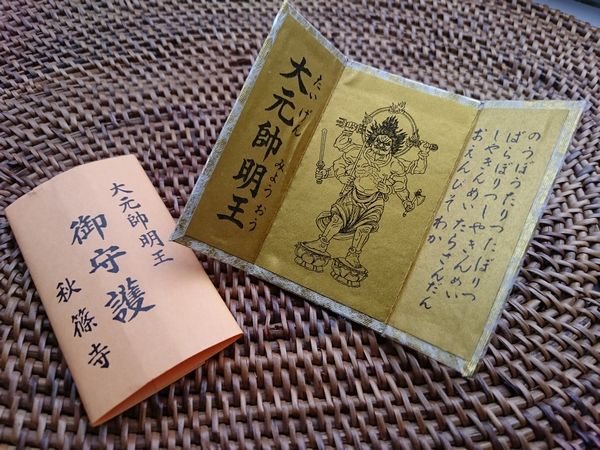 大元帥明王
御守護
秋篠寺
たいげんみょうおう
大元帥明王
のうぼうたりつたぼりつ
ばらぼりつしやきんめい
しやきんめいたらさんだん
おえんびそわか